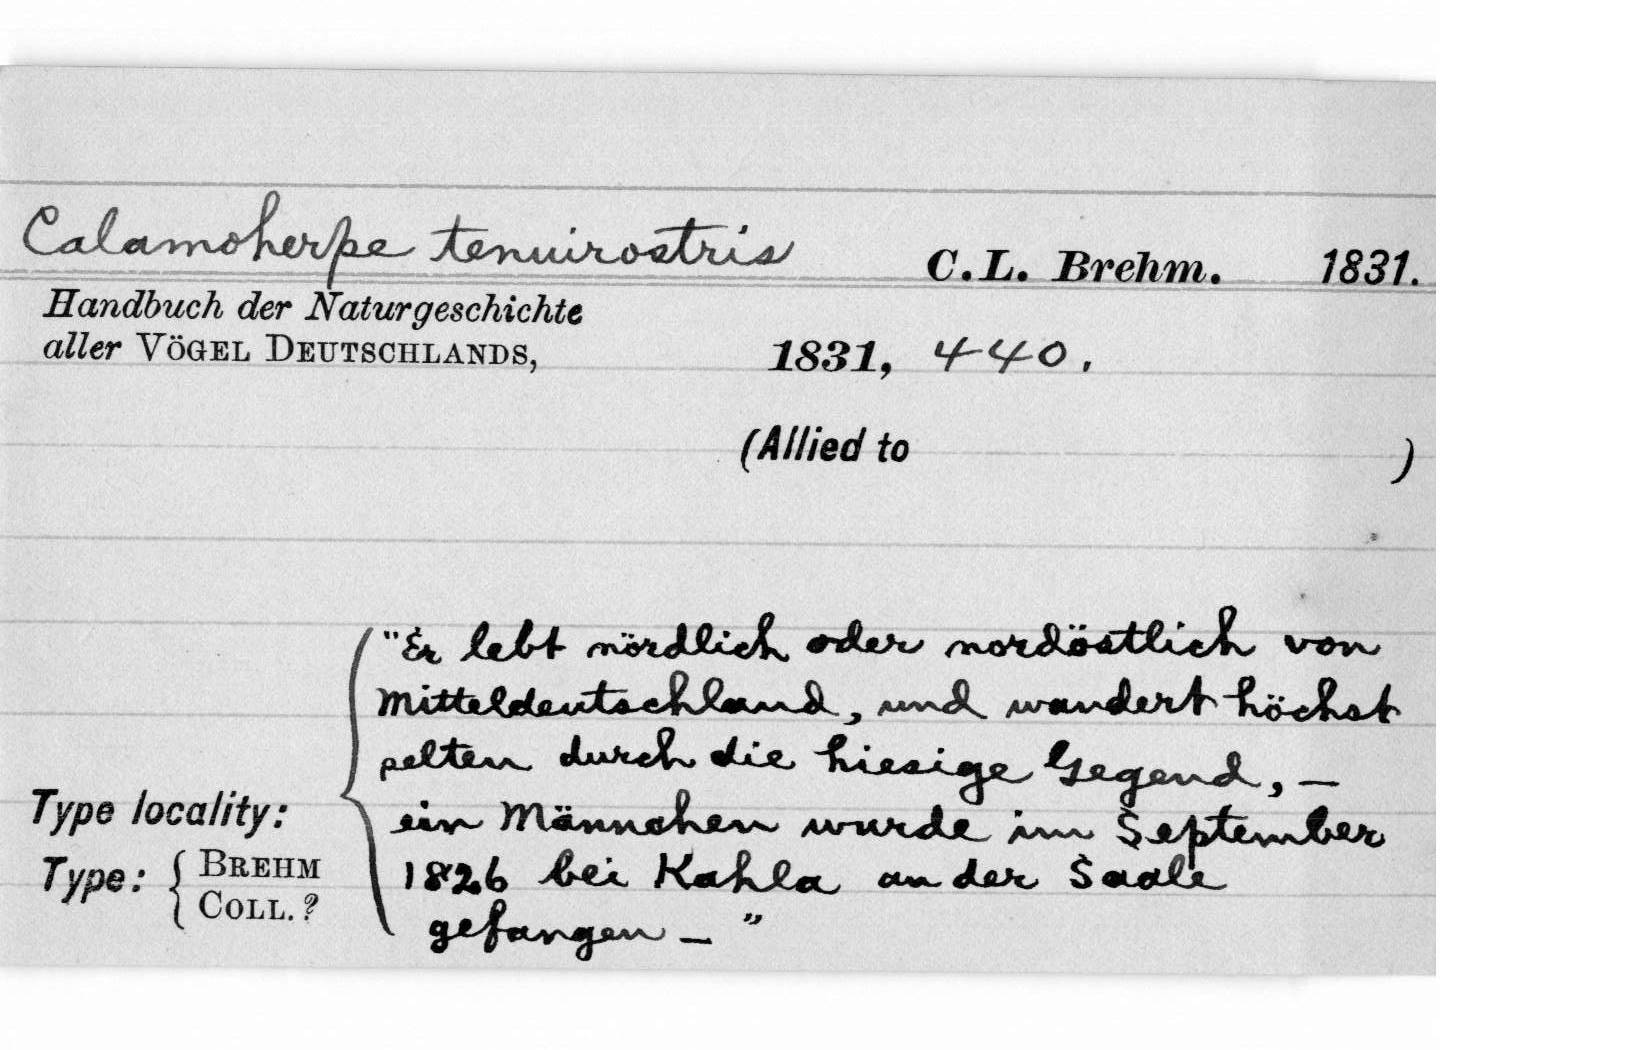 Calamoherpe tenuirostris C.L. Brehm. 1831.
Handbuch der Naturgeschichte
aller VÖGEL DEUTSCHLANDS, 1831, 440.
(Allied to )
"Er lebt nördlich oder nordöstlich von
Mitteldeutschland, und wandert höchst
selten durch die hiesige Gegend, —
ein Männchen wurde im September
1826 bei Kahla an der Saale
gefangen — "
Type locality:
Type: { BREHM
COLL. ?